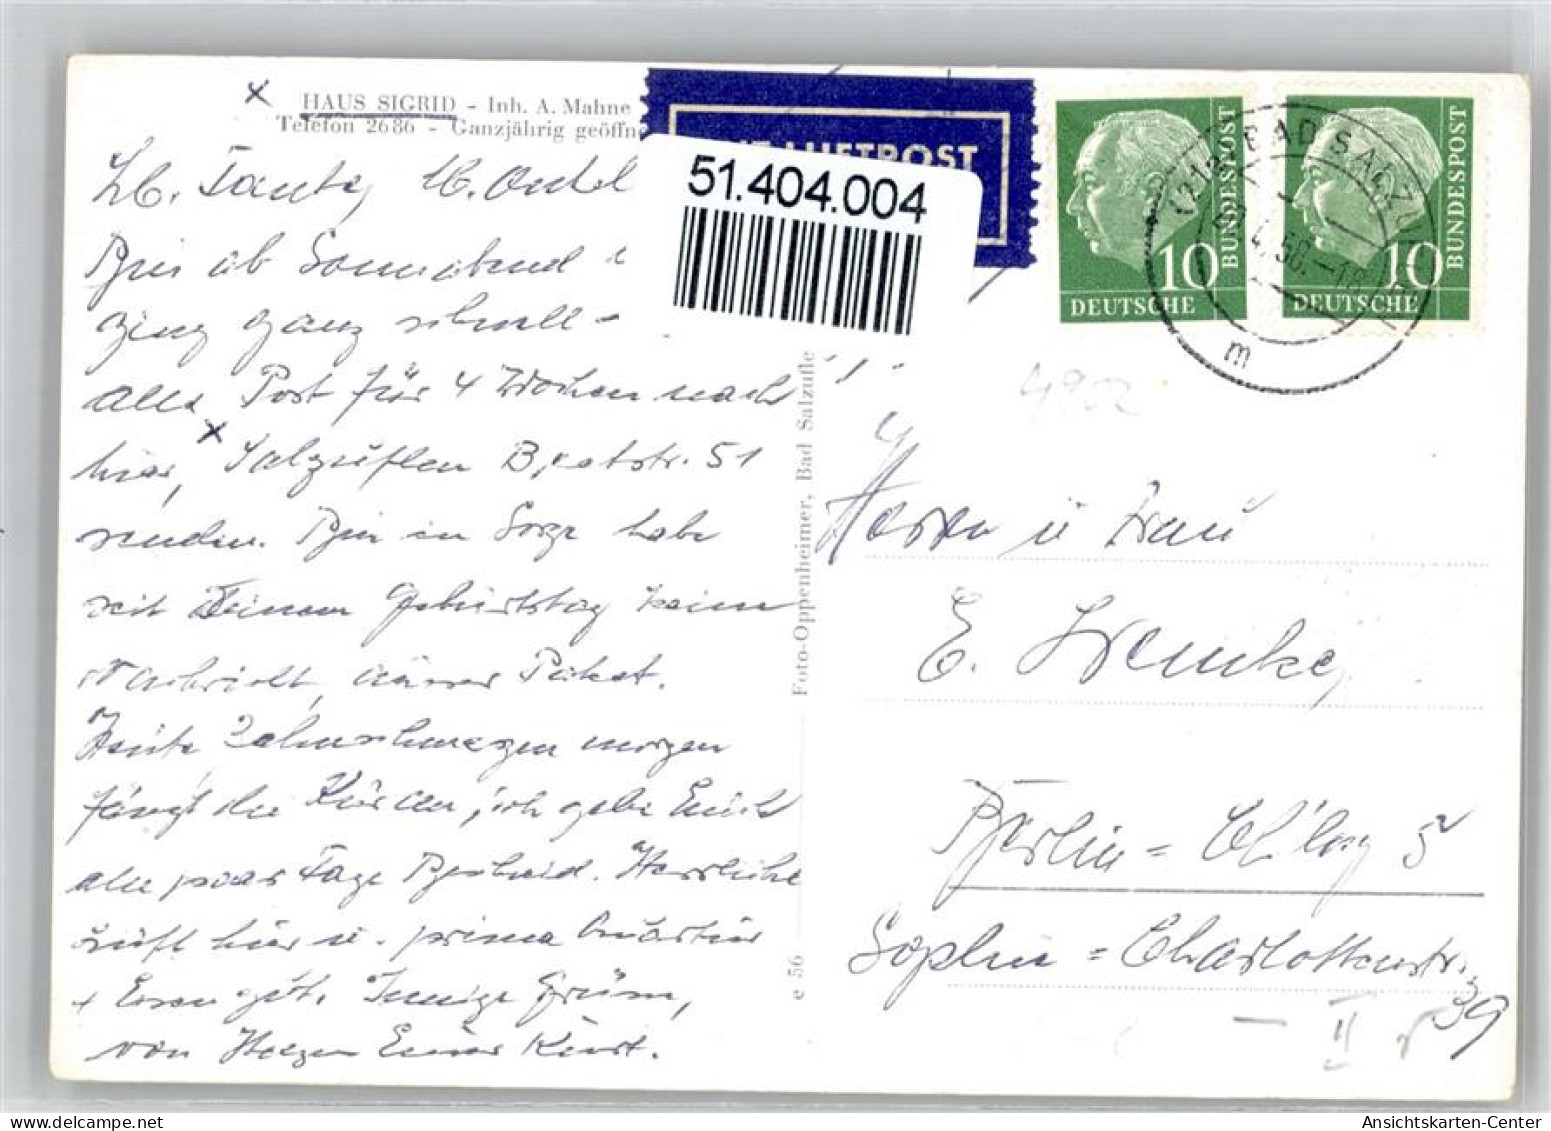 HAUS SIGRID - Inh. A. Mahne
Telefon 2686 - Ganzjährig geöffn
Lb. Tante, lb. Onkel
Bin ab Sonnabend
ging ganz schnell -
alle Post für 4 Wochen nach
hier, Salzuflen B, 51
senden. Bin in Sorge habe
seit Deinem Geburtstag keine
Nachricht, ausser Paket.
Heute Zahnschmerzen morgen
fängt die Kur an, ich gebe Euch
alle paar Tage Bescheid. Herrliche
Luft hier u. prima Quartier
+ Essen gut. Innige Grüsse,
von Herzen Euer Kurt.
51.404.004
LUFTPOST
10
DEUTSCHE
BUNDESPOST
10
DEUTSCHE
BUNDESPOST
BAD SALZU
m
4902
Foto-Oppenheimer, Bad Salzufle
e 56
Herrn u Frau
E.
Berlin = Ch'bg 5
Sophie = Charlottenstr.
39
- II
Ansichtskarten-Center